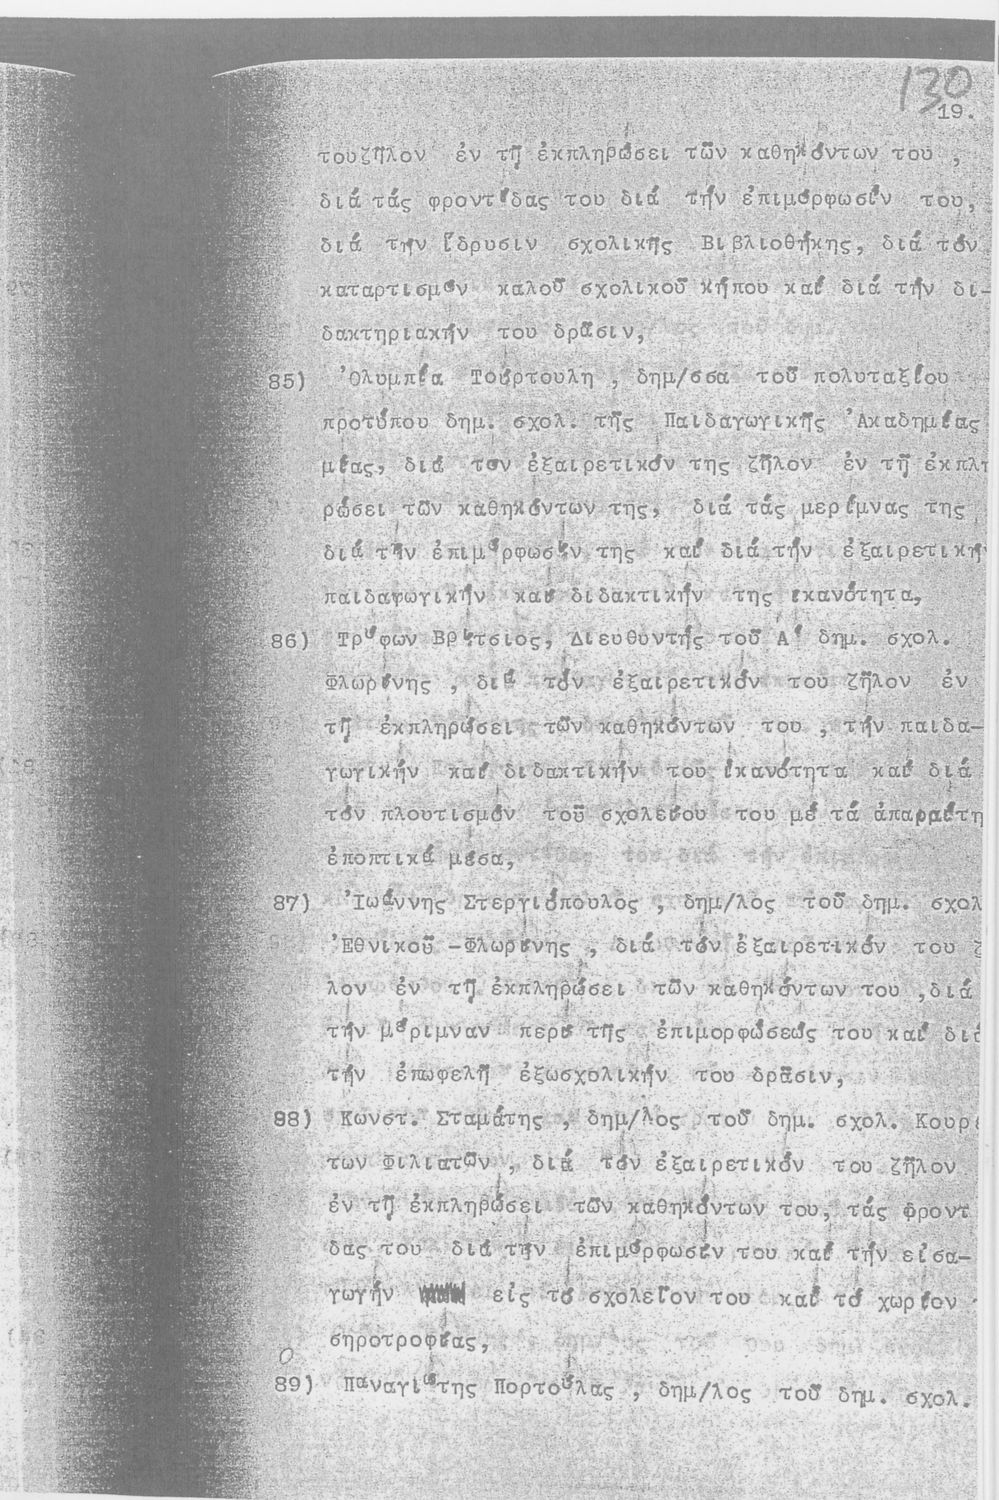 130
19.
τουζῆλον ἐν τῇ ἐκπληρώσει τῶν καθηκόντων του ,
διά τάς φροντίδας του διά τήν ἐπιμόρφωσίν του,
διά τήν ἵδρυσιν σχολικῆς Βιβλιοθήκης, διά τόν
καταρτισμόν καλοῦ σχολικοῦ κήπου καί διά τήν δι-
δακτηριακήν του δρᾶσιν,
85) Ὀλυμπία Τούρτουλη , δημ/σσα τοῦ πολυταξίου
προτύπου δημ. σχολ. τῆς Παιδαγωγικῆς Ἀκαδημίας
μίας, διά τόν ἐξαιρετικόν της ζῆλον ἐν τῇ ἐκπλη
ρώσει τῶν καθηκόντων της, διά τάς μερίμνας της
διά τήν ἐπιμόρφωσίν της καί διά τήν ἐξαιρετικήν
παιδαγωγικήν καί διδακτικήν της ἱκανότητα,
86) Τρύφων Βρίτσιος, Διευθυντής τοῦ Α΄ δημ. σχολ.
Φλωρίνης , διά τόν ἐξαιρετικόν του ζῆλον ἐν
τῇ ἐκπληρώσει τῶν καθηκόντων του , τήν παιδα-
γωγικήν καί διδακτικήν του ἱκανότητα καί διά
τόν πλουτισμόν τοῦ σχολείου του μέ τά ἀπαραίτη
ἐποπτικά μέσα,
87) Ἰωάννης Στεργιόπουλος , δημ/λος τοῦ δημ. σχολ
Ἐθνικοῦ -Φλωρίνης , διά τόν ἐξαιρετικόν του ζ
λον ἐν τῇ ἐκπληρώσει τῶν καθηκόντων του ,διά
τήν μέριμναν περί τῆς ἐπιμορφώσεώς του καί διά
τήν ἐπωφελῆ ἐξωσχολικήν του δρᾶσιν,
88) Κωνστ. Σταμάτης , δημ/λος τοῦ δημ. σχολ. Κουρε
των Φιλιατῶν , διά τόν ἐξαιρετικόν του ζῆλον
ἐν τῇ ἐκπληρώσει τῶν καθηκόντων του, τάς φροντ
δας του διά τήν ἐπιμόρφωσίν του καί τήν εἰσα-
γωγήν εἰς τό σχολεῖον του καί τό χωρίον
σηροτροφίας,
89) Παναγιώτης Πορτούλας , δημ/λος τοῦ δημ. σχολ.